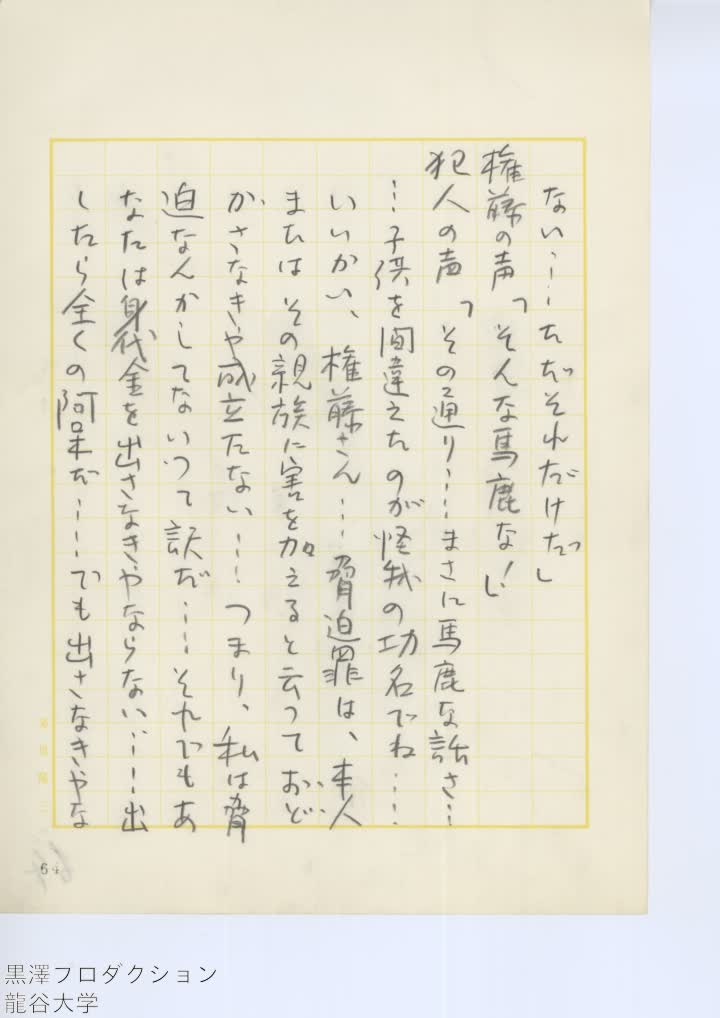 ない……ただそれだけだ」
権藤の声「そんな馬鹿な!」
犯人の声「その通り……まさに馬鹿な話さ…
…子供を間違えたのが怪我の功名でね……
いいかい、権藤さん…脅迫罪は、本人
またはその親族に害を加えると云っておど
かさなきや成立たない……つまり、私は脅
迫なんかしてないって訳だ……それでもあ
なたは身代金を出さなきやならない……出
したら全くの阿呆だ……でも出さなきやな
64
黒澤プロダクション
龍谷大学